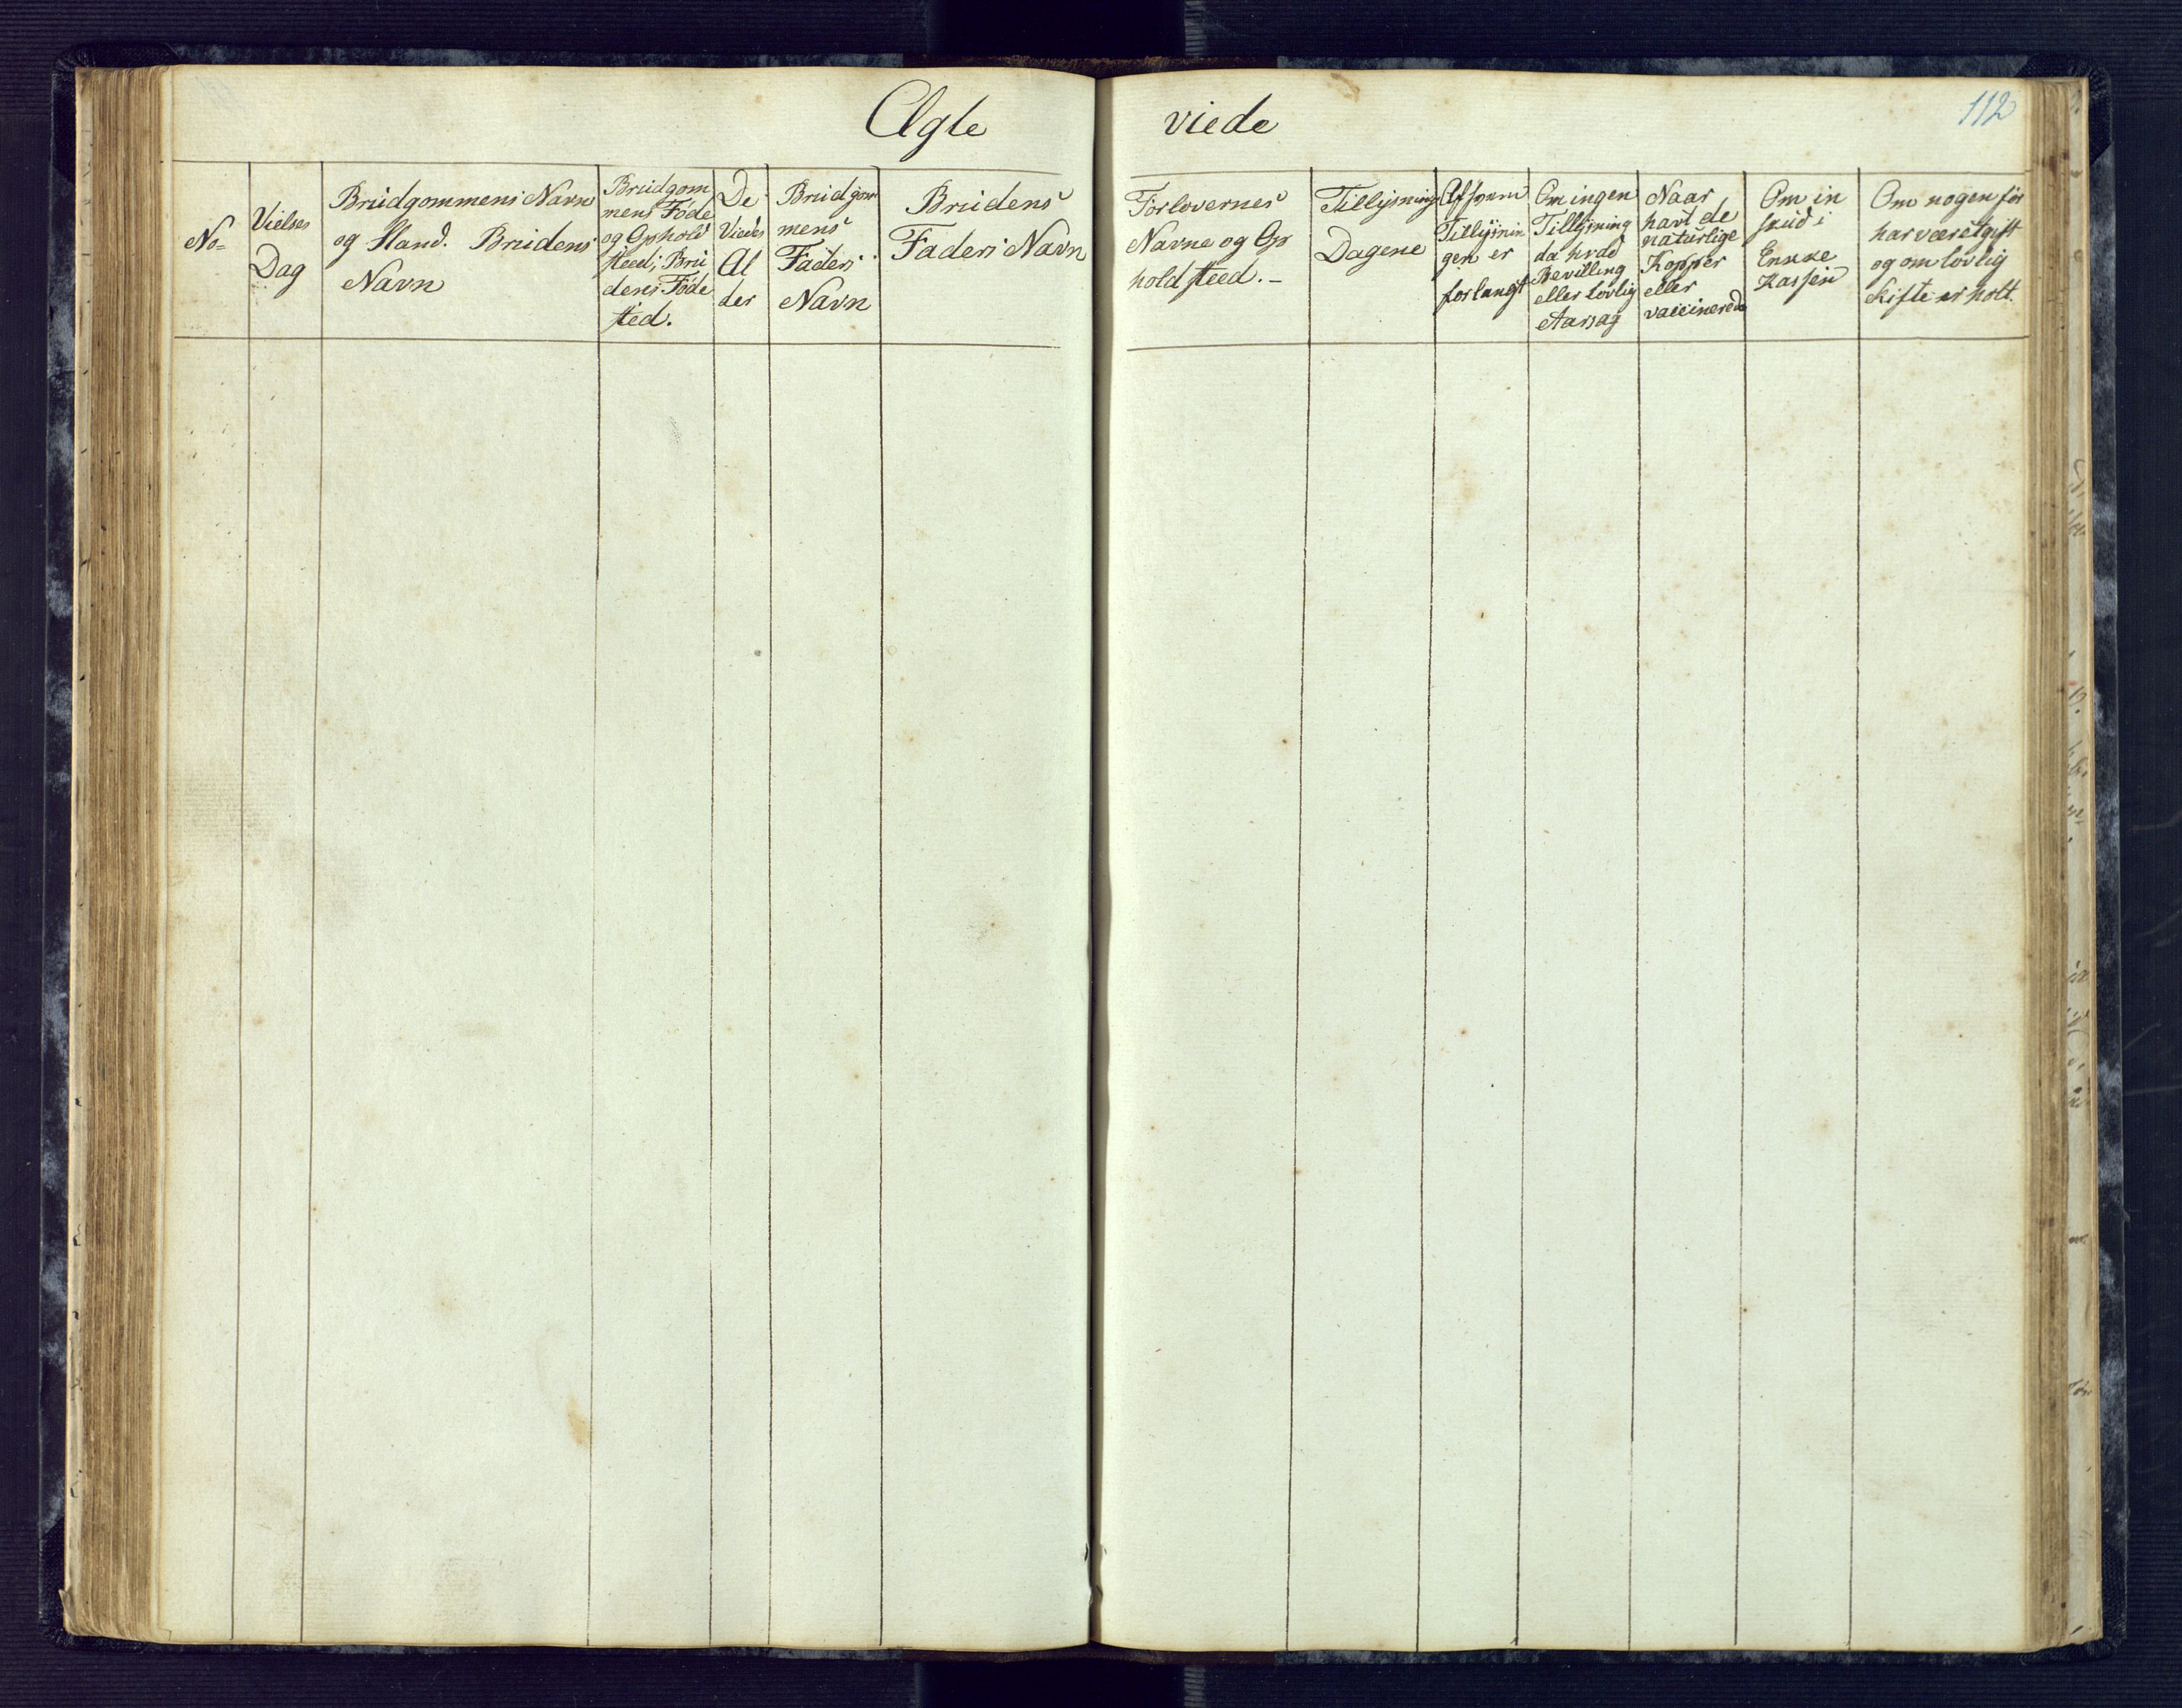 Ægte viede
112
No=
Vielses
Dag
Brüdgommens Navn
og Stand. Brüdens
Navn
Brüdgom
mens Föde
og Ophold
steed; Brü
dens Föde
sted.
De
Viedes
Al
der
Brüdgom
mens
Faders
Navn
Brüdens
Faders Navn
Forlovernes
Navne og Op
hold steed. -
Tillysnings
Dagene
Af hvem
Tillysnin
gen er
forlangt
Om ingen
Tillysning
da hvad
Bevilling
eller lovlig
Aarsag
Naar
havt de
natürlige
Kopper
eller
vaccinerede
Om in
skud i
Enkke
Kassen
Om nogen för
har været gift
og om lovlig
Skifte er holt.